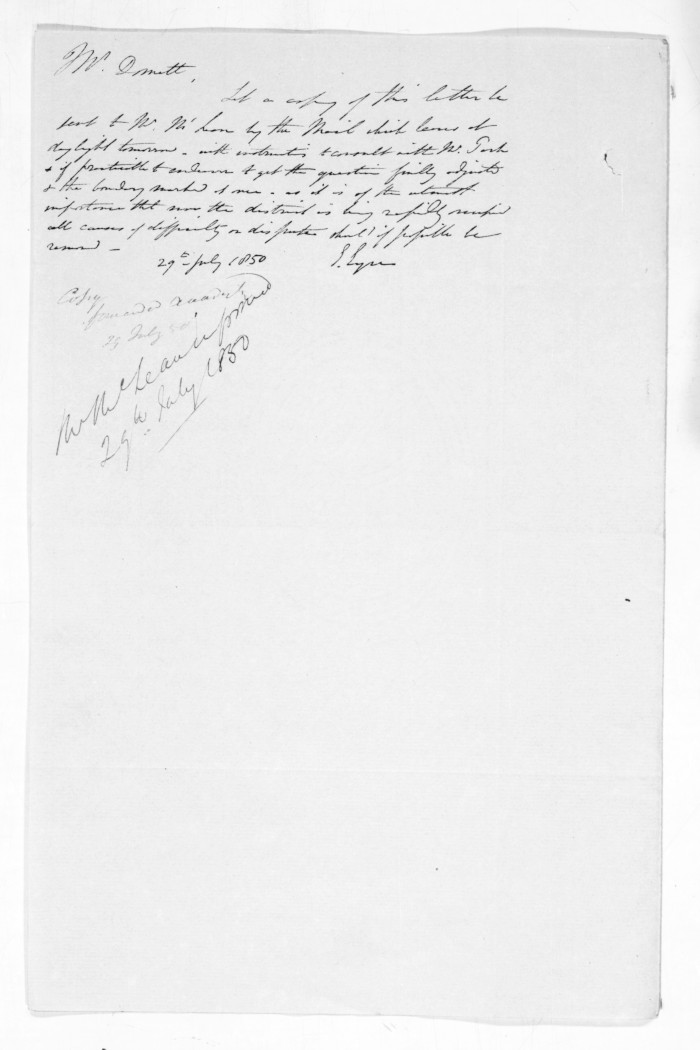 Mr. Domett,
Let a copy of this letter be
sent to Mr. McLean by the Mail which leaves at
daylight tomorrow - with instructions to consult with Mr. Park
& if practicable to endeavor to get the question finally adjusted
& the boundary marked at once - as it is of the utmost
importance that now the district is being rapidly occupied
all causes of difficulty or disputes should if possible be
removed -
29th July 1850 E. Eyre
Copy
forwarded
29 July 50
Mr McLean informed
29th July 1850